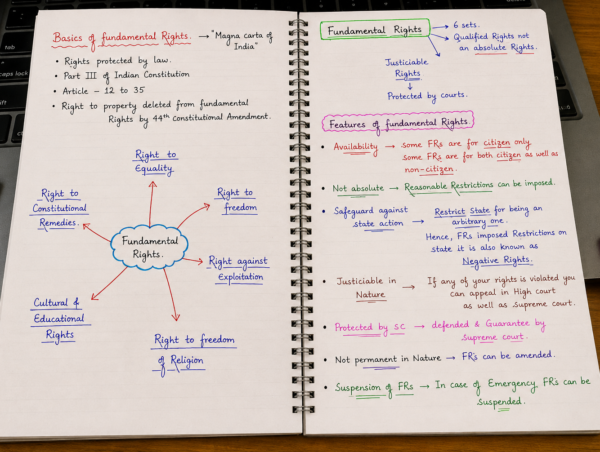 Basics of fundamental Rights. → "Magna carta of
India"
• Rights protected by law.
• Part III of Indian Constitution
• Article – 12 to 35
• Right to property deleted from fundamental
Rights by 44th Constitutional Amendment.
Right to
Equality
Right to
Constitutional
Remedies.
Right to
freedom
Fundamental
Rights.
Right against
Exploitation
Cultural &
Educational
Rights
Right to freedom
of Religion
Fundamental Rights → 6 sets.
→ Qualified Rights not
an absolute Rights.
Justiciable
Rights
↓
Protected by courts.
Features of fundamental Rights.
• Availability → some FRs are for citizen only
some FRs are for both citizen as well as
non-citizen.
• Not absolute → Reasonable Restrictions can be imposed.
• Safeguard against
state action → Restrict State for being an
arbitrary one.
Hence, FRs imposed Restrictions on
state it is also known as
Negative Rights.
• Justiciable in
Nature → If any of your rights is violated you
can appeal in High court
as well as Supreme court.
• Protected by SC → defended & Guarantee by
Supreme court.
• Not permanent in Nature → FRs can be amended.
• Suspension of FRs → In case of Emergency FRs can be
Suspended.
caps lock